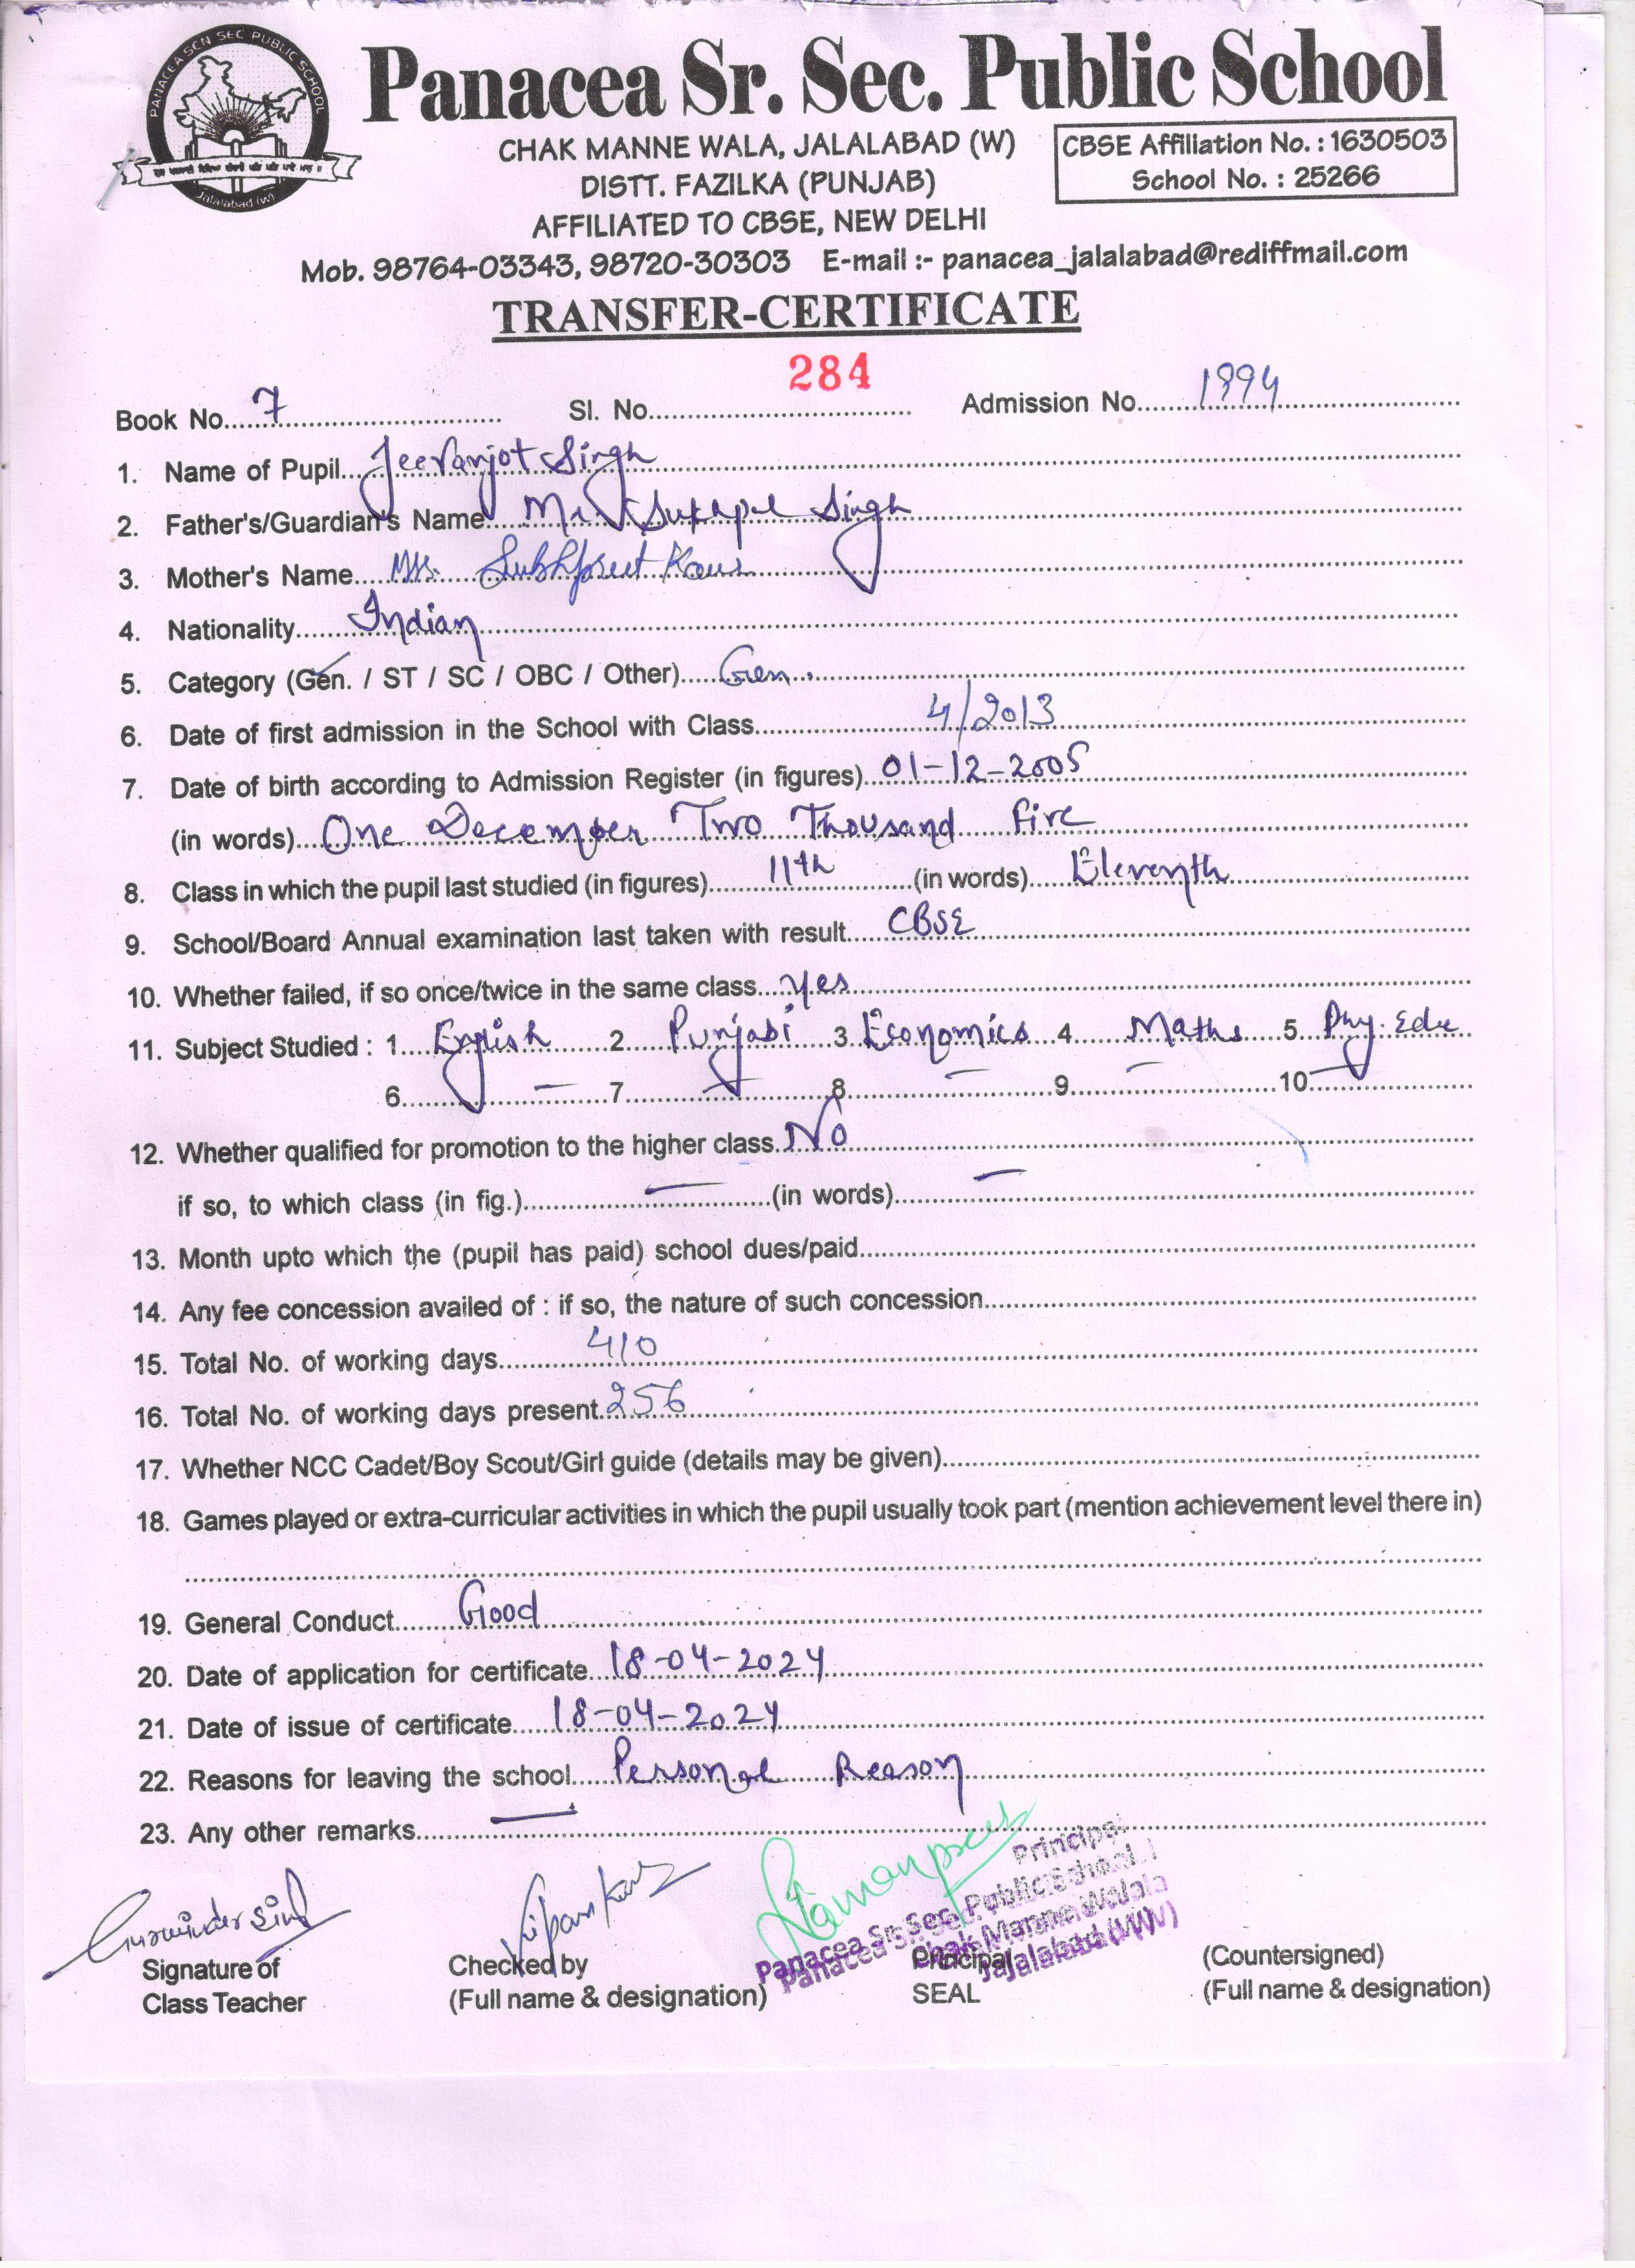 PANACEA SCN SEC PUBLIC SCHOOL
Jalalabad (w)
Panacea Sr. Sec. Public School
CHAK MANNE WALA, JALALABAD (W)
CBSE Affiliation No. : 1630503
DISTT. FAZILKA (PUNJAB)
School No. : 25266
AFFILIATED TO CBSE, NEW DELHI
Mob. 98764-03343, 98720-30303 E-mail :- panacea_jalalabad@rediffmail.com
TRANSFER-CERTIFICATE
Book No. 7 Sl. No. 284 Admission No. 1994
1. Name of Pupil Jeevanjot Singh
2. Father's/Guardian's Name Mr. Singh
3. Mother's Name Mrs. Kaur
4. Nationality Indian
5. Category (Gen. / ST / SC / OBC / Other) Gen.
6. Date of first admission in the School with Class 4/2013
7. Date of birth according to Admission Register (in figures) 01-12-2005
(in words) One December Two Thousand Five
8. Class in which the pupil last studied (in figures) 11th (in words) Eleventh
9. School/Board Annual examination last taken with result CBSE
10. Whether failed, if so once/twice in the same class yes
11. Subject Studied : 1 English 2 Punjabi 3 Economics 4 Maths 5 Phy. Edu
6 — 7 — 8 — 9 — 10 —
12. Whether qualified for promotion to the higher class No
if so, to which class (in fig.) — (in words) —
13. Month upto which the (pupil has paid) school dues/paid
14. Any fee concession availed of : if so, the nature of such concession
15. Total No. of working days 410
16. Total No. of working days present 256
17. Whether NCC Cadet/Boy Scout/Girl guide (details may be given)
18. Games played or extra-curricular activities in which the pupil usually took part (mention achievement level there in)
19. General Conduct Good
20. Date of application for certificate 18-04-2024
21. Date of issue of certificate 18-04-2024
22. Reasons for leaving the school Personal Reason
23. Any other remarks —
Principal
Panacea Sr. Sec. Public School
Chak Manne Walala
Jajalabad (W)
Signature of
Class Teacher
Checked by
(Full name & designation)
Principal
SEAL
(Countersigned)
(Full name & designation)